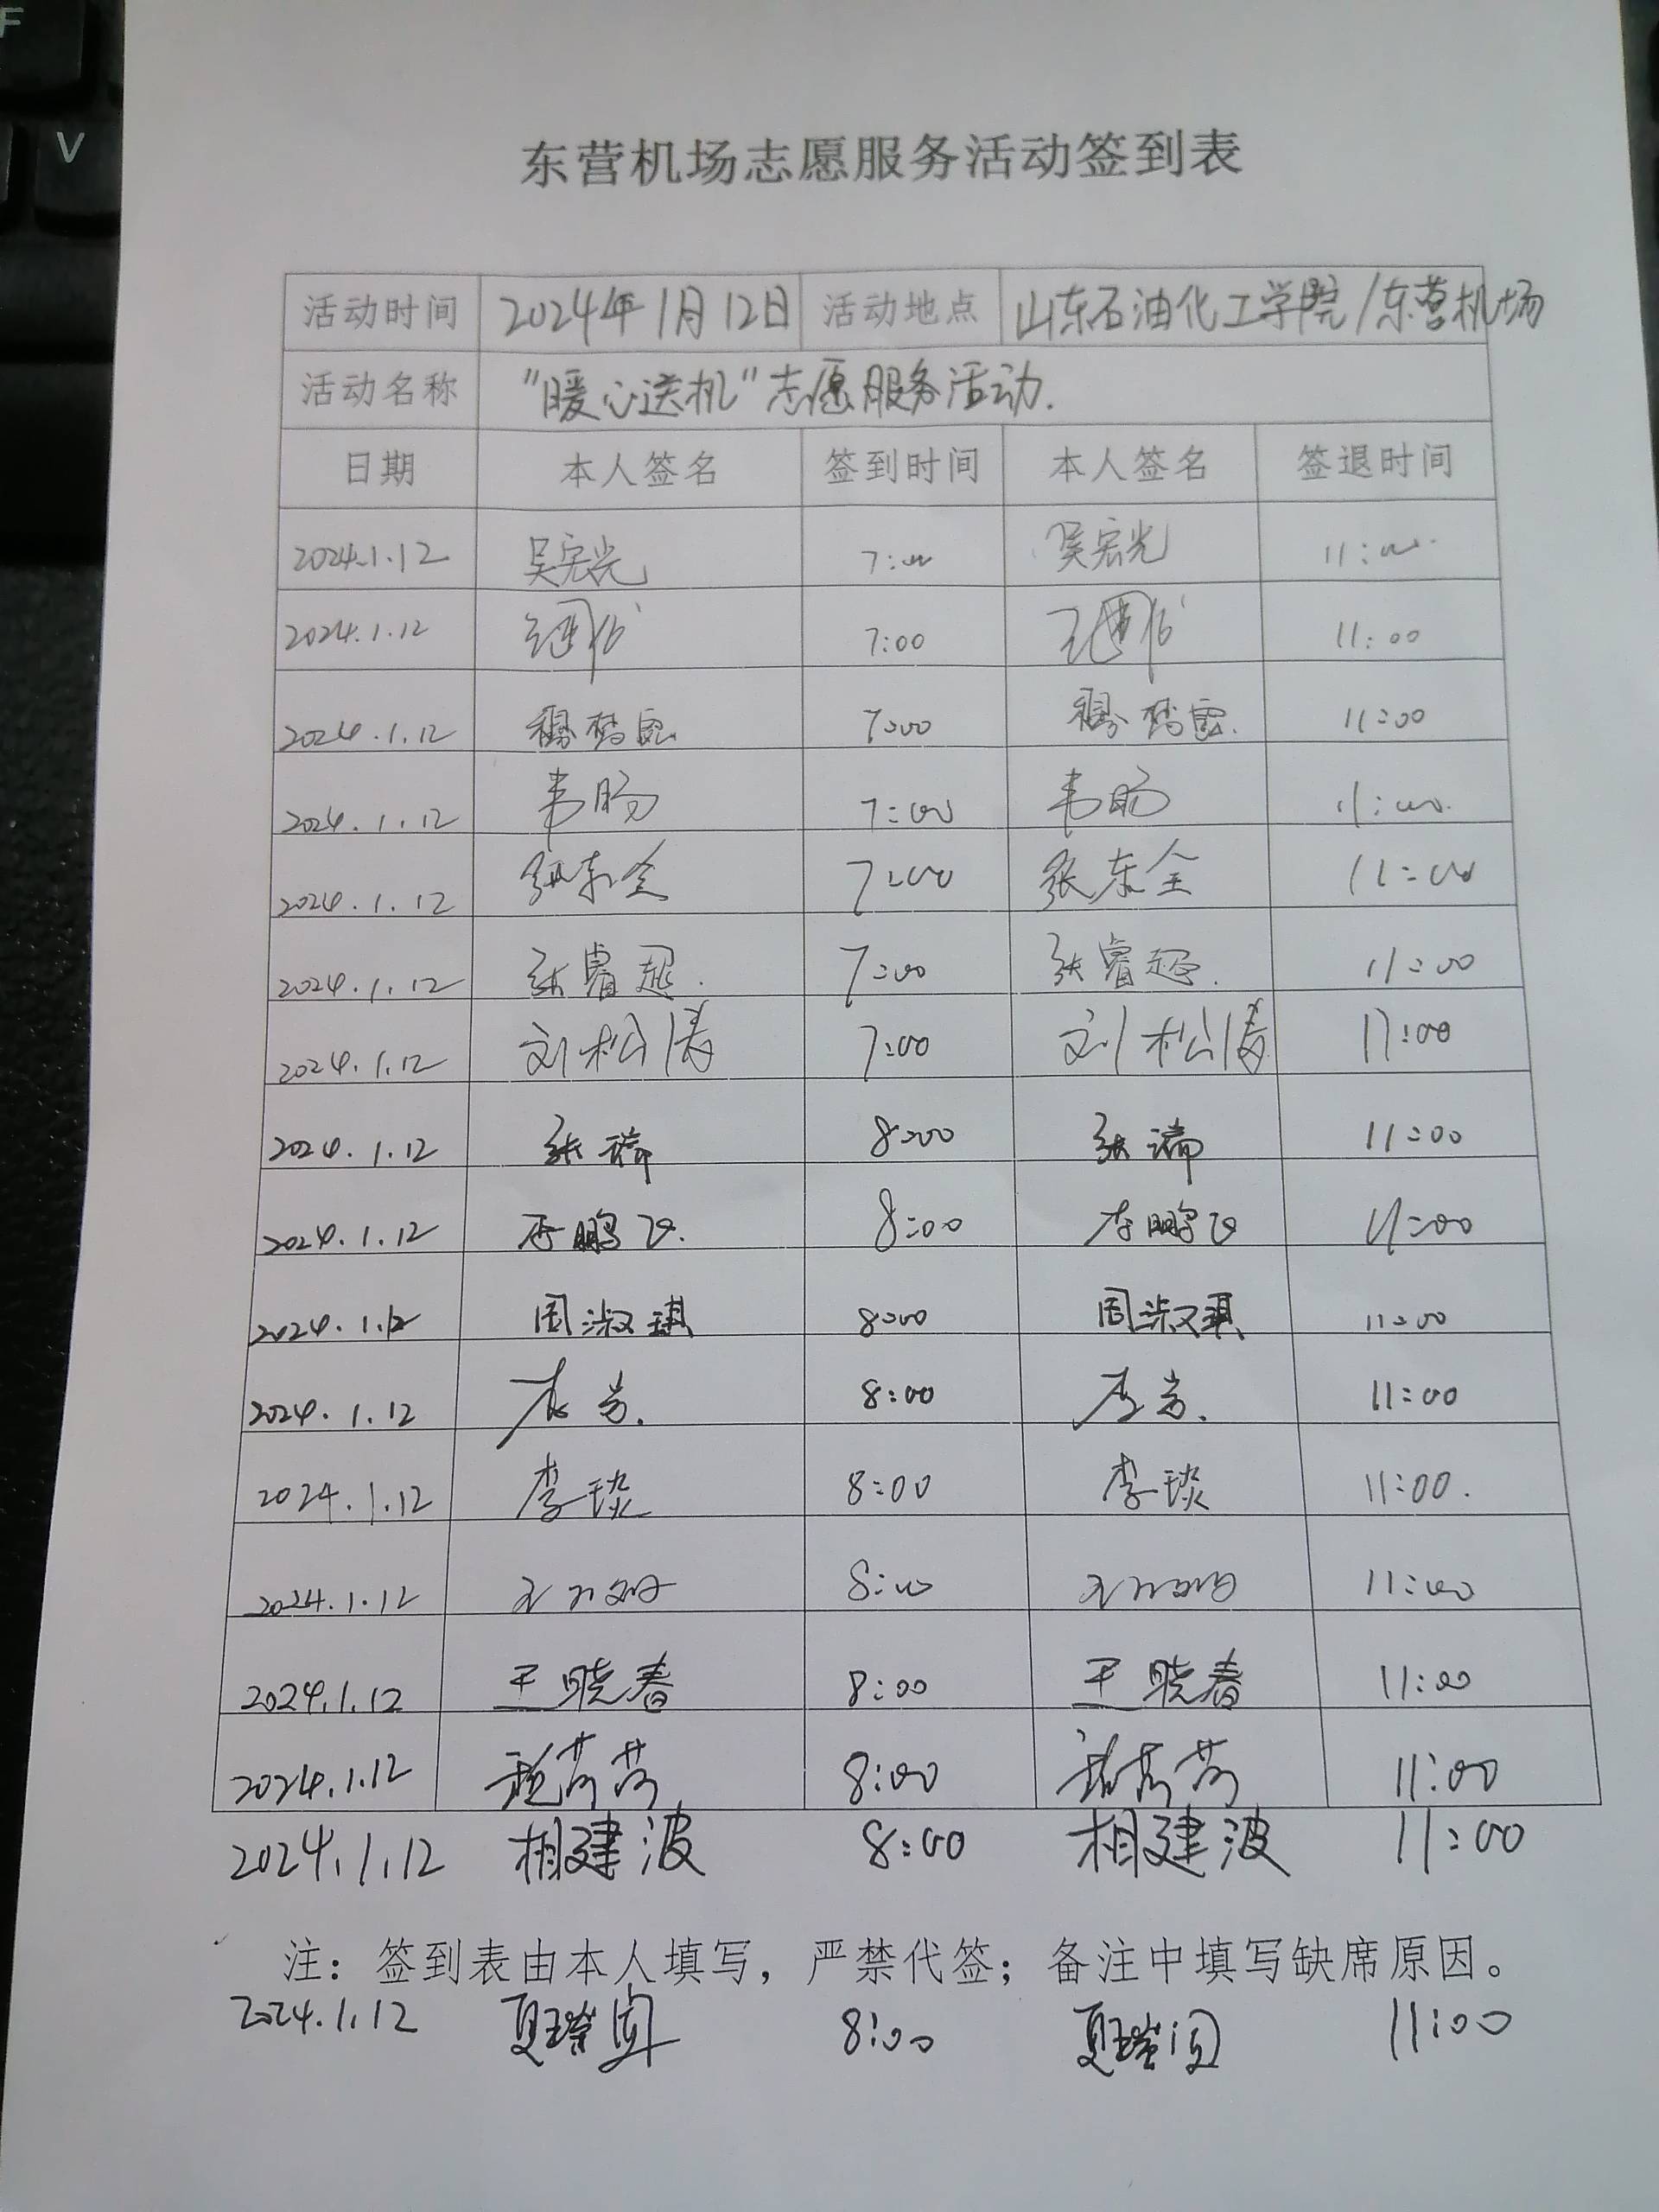 F
V
东营机场志愿服务活动签到表
活动时间 2024年1月12日 活动地点 山东石油化工学院/东营机场
活动名称 "暖心送机"志愿服务活动.
日期 本人签名 签到时间 本人签名 签退时间
2024.1.12 吴宏光 7:00 吴宏光 11:00
2024.1.12 7:00 11:00
2024.1.12 7:00 11:00
2024.1.12 韦旸 7:00 韦旸 11:00
2024.1.12 张东全 7:00 张东全 11:00
2024.1.12 张睿超. 7:00 张睿超. 11:00
2024.1.12 刘松涛 7:00 刘松涛 11:00
2024.1.12 张瑞 8:00 张瑞 11:00
2024.1.12 李鹏飞. 8:00 李鹏飞 11:00
2024.1.12 周淑琪 8:00 周淑琪 11:00
2024.1.12 8:00 11:00
2024.1.12 李琰 8:00 李琰 11:00.
2024.1.12 8:00 11:00
2024.1.12 王晓春 8:00 王晓春 11:00
2024.1.12 8:00 11:00
2024.1.12 相建波 8:00 相建波 11:00
注：签到表由本人填写，严禁代签；备注中填写缺席原因。
2024.1.12 8:00 11:00